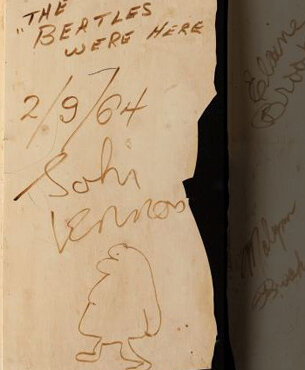 THE
"BEATLES
WERE HERE
2/9/64
John
Lennon
Elaine